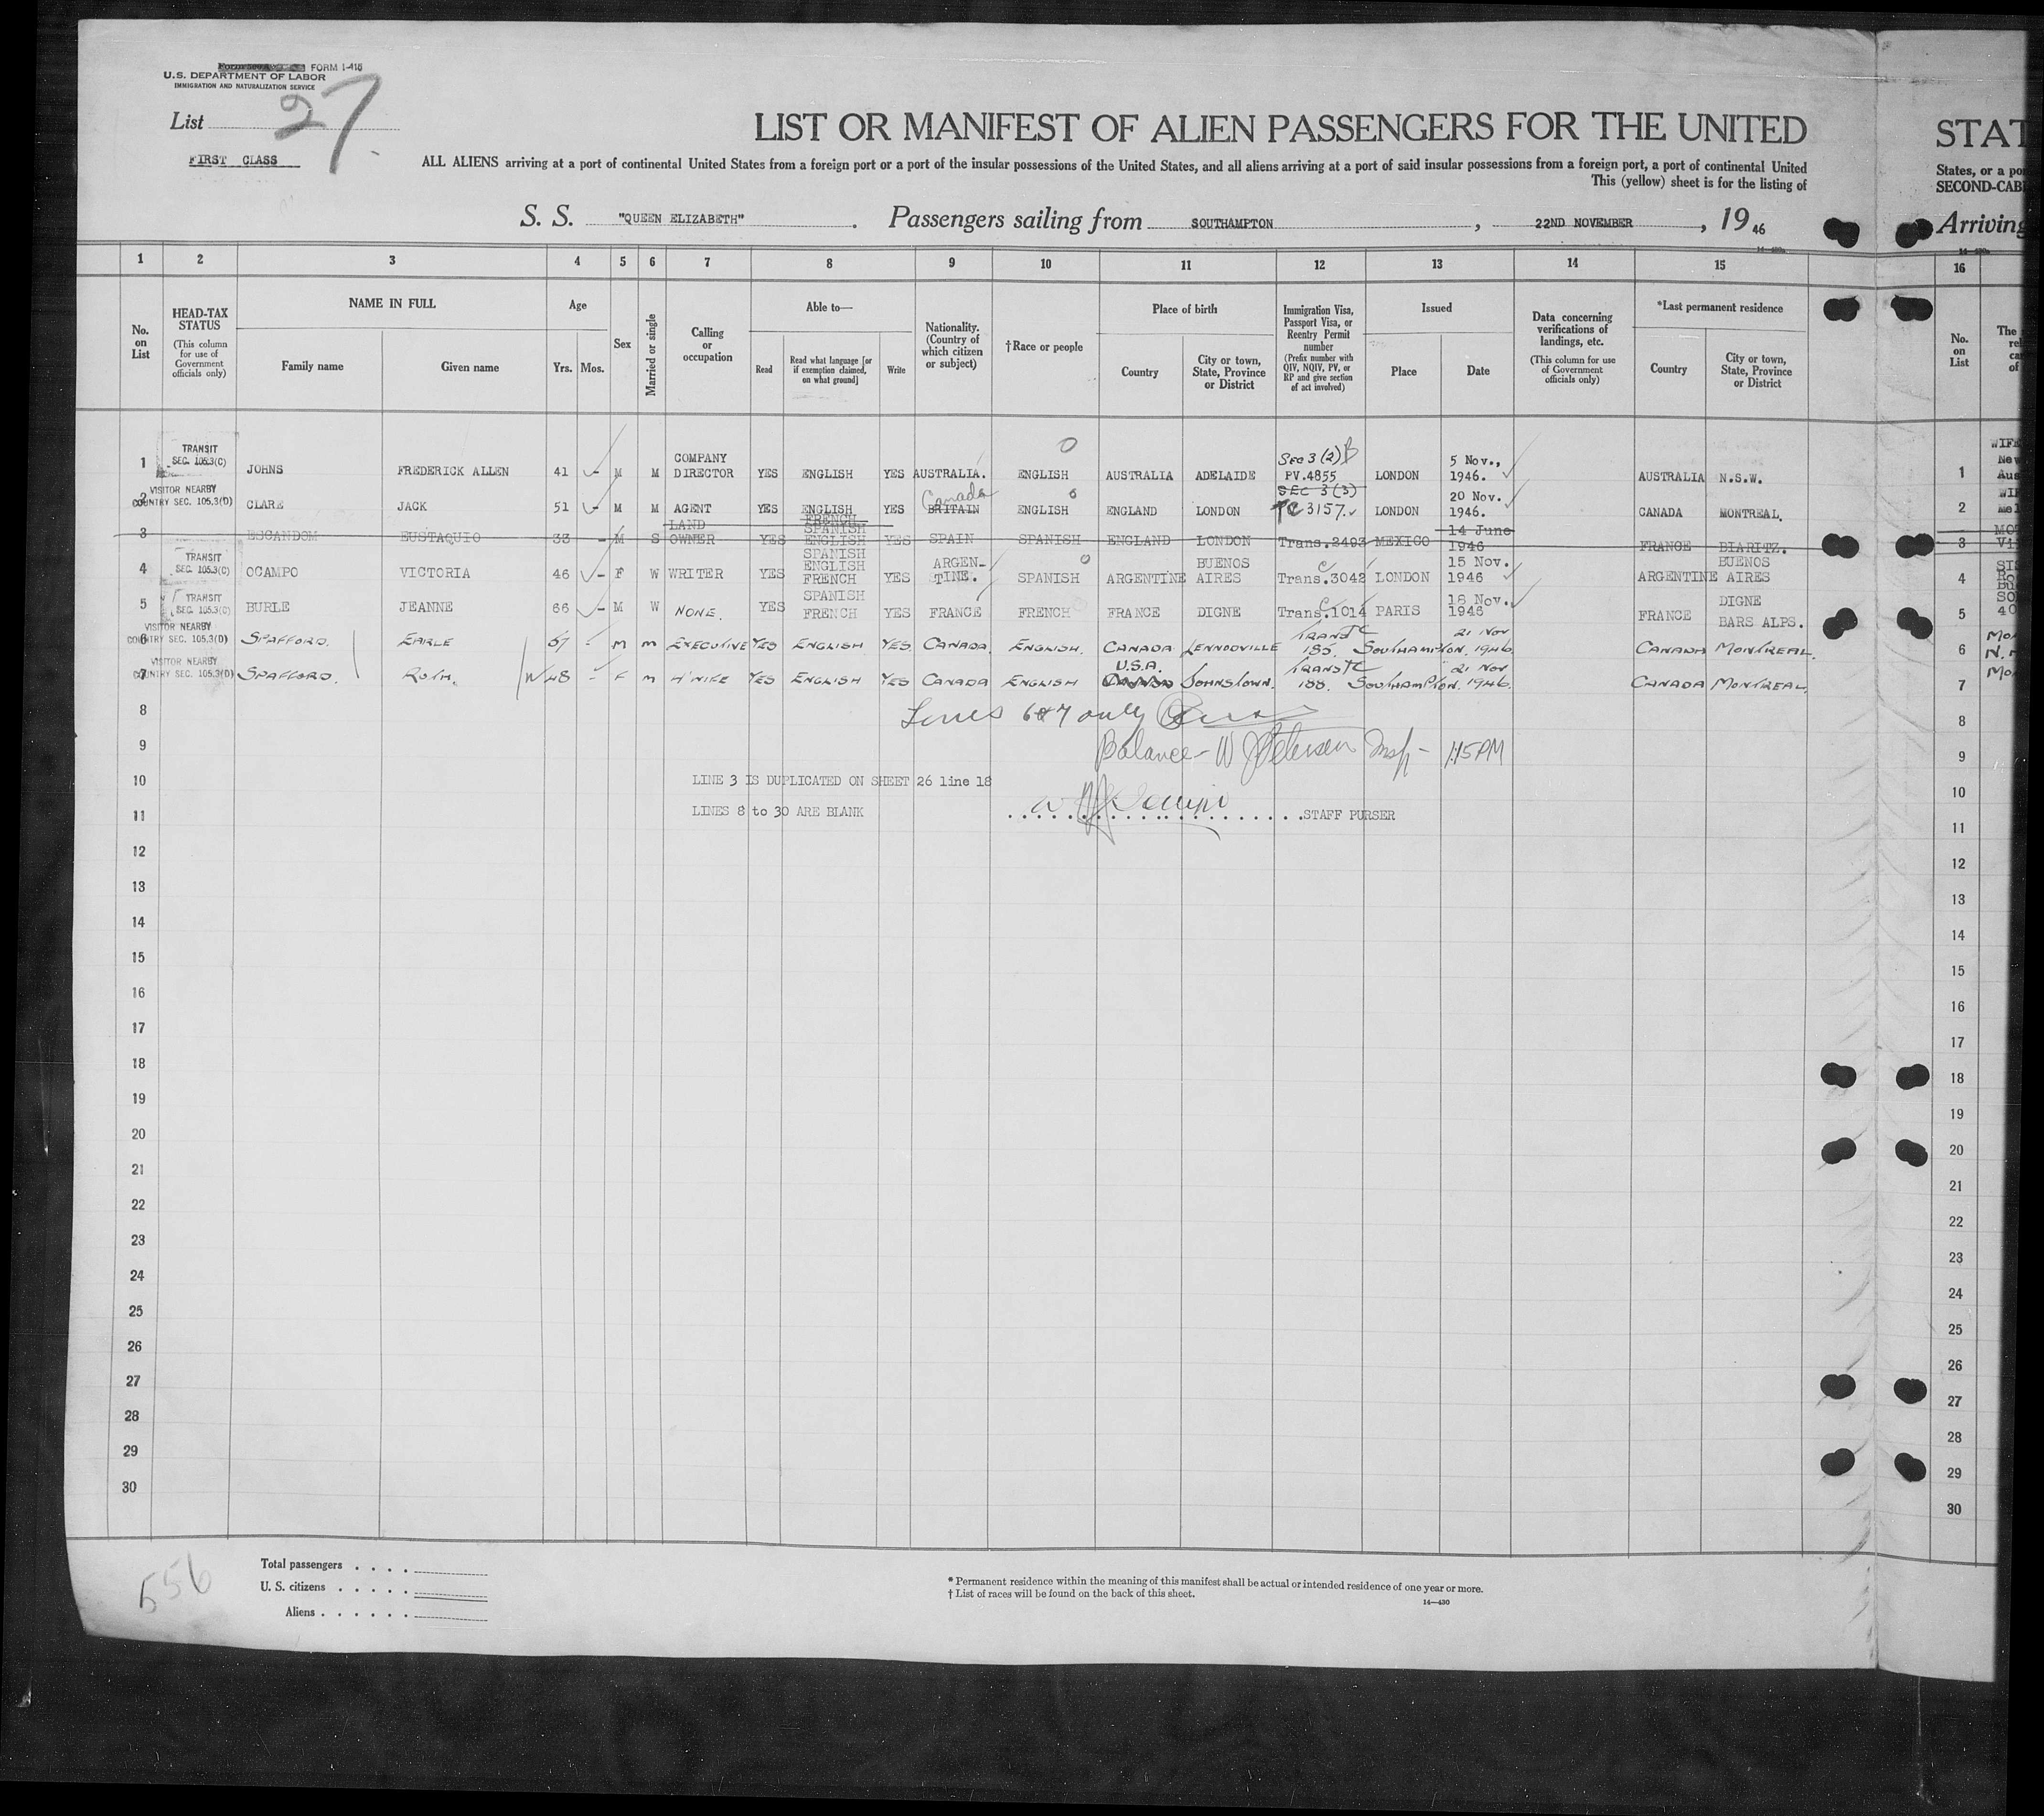 FORM I-418
U.S. DEPARTMENT OF LABOR
IMMIGRATION AND NATURALIZATION SERVICE
List 27
FIRST CLASS
LIST OR MANIFEST OF ALIEN PASSENGERS FOR THE UNITED STAT
ALL ALIENS arriving at a port of continental United States from a foreign port or a port of the insular possessions of the United States, and all aliens arriving at a port of said insular possessions from a foreign port, a port of continental United
States, or a po
This (yellow) sheet is for the listing of
SECOND-CAB
S. S. "QUEEN ELIZABETH". Passengers sailing from SOUTHAMPTON, 22ND NOVEMBER, 19 46
Arriving
1 2 3 4 5 6 7 8 9 10 11 12 13 14 15 16
No. on List
HEAD-TAX STATUS
(This column for use of Government officials only)
NAME IN FULL
Family name
Given name
Age
Yrs.
Mos.
Sex
Married or single
Calling or occupation
Able to—
Read
Read what language [or if exemption claimed, on what ground]
Write
Nationality. (Country of which citizen or subject)
†Race or people
Place of birth
Country
City or town, State, Province or District
Immigration Visa, Passport Visa, or Reentry Permit number
(Prefix number with QIV, NQIV, PV, or RP and give section of act involved)
Issued
Place
Date
Data concerning verifications of landings, etc.
(This column for use of Government officials only)
*Last permanent residence
Country
City or town, State, Province or District
No. on List
1 TRANSIT SEC. 105.3(C) JOHNS FREDERICK ALLEN 41 - M M COMPANY DIRECTOR YES ENGLISH YES AUSTRALIA. ENGLISH AUSTRALIA ADELAIDE Sec 3(2)B PV.4855 LONDON 5 Nov., 1946. AUSTRALIA N.S.W. 1 WIFE
2 VISITOR NEARBY COUNTRY SEC. 105.3(D) CLARE JACK 51 - M M AGENT YES ENGLISH YES BRITAIN Canada ENGLISH ENGLAND LONDON SEC 3(3) TC 3157. LONDON 20 Nov. 1946. CANADA MONTREAL. 2
3 ESCANDOM EUSTAQUIO 33 - M S LAND OWNER YES FRENCH SPANISH ENGLISH YES SPAIN SPANISH ENGLAND LONDON Trans.2493 MEXICO 14 June 1946 FRANCE BIARITZ. 3
4 TRANSIT SEC. 105.3(C) OCAMPO VICTORIA 46 - F W WRITER YES SPANISH ENGLISH FRENCH YES ARGEN-TINE. SPANISH ARGENTINE BUENOS AIRES Trans.3042 LONDON 15 Nov. 1946 ARGENTINE BUENOS AIRES 4
5 TRANSIT SEC. 105.3(C) BURLE JEANNE 66 - M W NONE. YES SPANISH FRENCH YES FRANCE FRENCH FRANCE DIGNE Trans.1014 PARIS 18 Nov. 1946 FRANCE DIGNE BARS ALPS. 5
6 VISITOR NEARBY COUNTRY SEC. 105.3(D) SPAFFORD. EARLE - M M EXECUTIVE YES ENGLISH YES CANADA. ENGLISH. CANADA LENNODVILLE TRANS TC 185. SOUTHAMPTON. 21 NOV 1946 CANADA MONTREAL. 6
7 VISITOR NEARBY COUNTRY SEC. 105.3(D) SPAFFORD. RUTH. W 48 - F M H'WIFE YES ENGLISH YES CANADA ENGLISH U.S.A. JOHNSTOWN. TRANS TC 188. SOUTHAMPTON. 21 NOV 1946. CANADA MONTREAL. 7
8 Lines 6&7 only 8
9 Balance - W Petersen Insp - 1:15 PM 9
10 LINE 3 IS DUPLICATED ON SHEET 26 line 18 10
11 LINES 8 to 30 ARE BLANK STAFF PURSER 11
12 12
13 13
14 14
15 15
16 16
17 17
18 18
19 19
20 20
21 21
22 22
23 23
24 24
25 25
26 26
27 27
28 28
29 29
30 30
556
Total passengers . . . .
U. S. citizens . . . . .
Aliens . . . . . .
* Permanent residence within the meaning of this manifest shall be actual or intended residence of one year or more.
† List of races will be found on the back of this sheet.
14—430